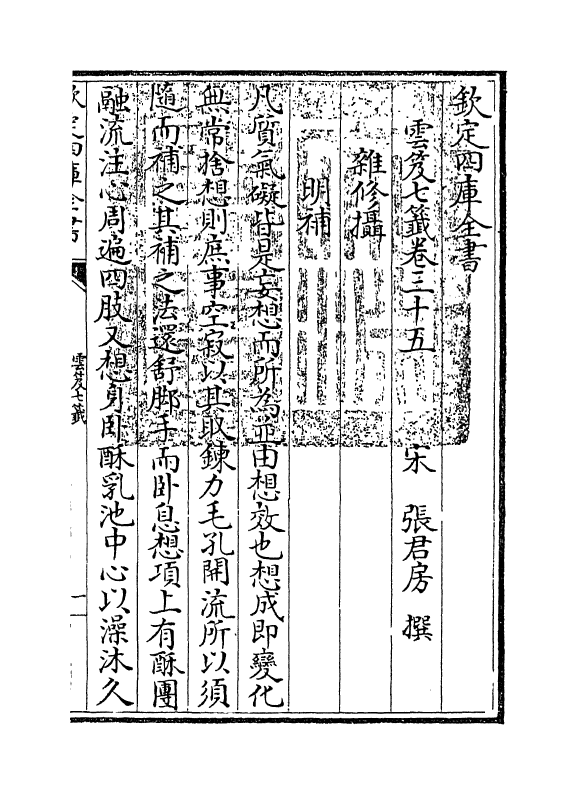 欽定四庫全書
雲笈七籤卷三十五　　宋　張君房　撰
雜修攝
明補
凡質氣礙皆是妄想而所為並由想效也想成即變化
無常捨想則庶事空寂以其取鍊力毛孔開流所以須
隨而補之其補之法還舒脚手而卧息想項上有酥團
融流注心周遍四肢又想身卧酥乳池中心以澡沐久
欽定四庫全書
雲笈七籤
一